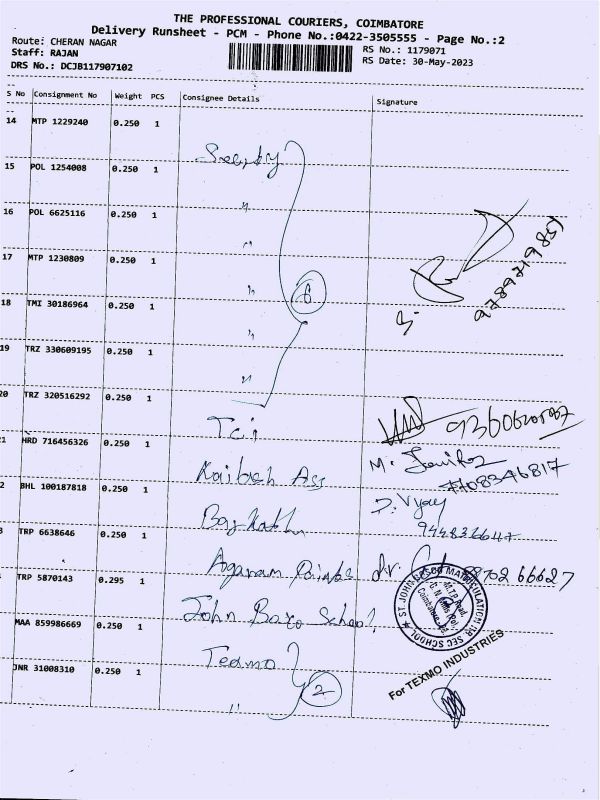 THE PROFESSIONAL COURIERS, COIMBATORE
Delivery Runsheet - PCM - Phone No.:0422-3505555 - Page No.:2
Route: CHERAN NAGAR
RS No.: 1179071
Staff: RAJAN
RS Date: 30-May-2023
DRS No.: DCJB117907102
S No Consignment No Weight PCS Consignee Details Signature
14 MTP 1229240 0.250 1
15 POL 1254008 0.250 1
16 POL 6625116 0.250 1 "
17 MTP 1230809 0.250 1 "
18 TMI 30186964 0.250 1 "
6
19 TRZ 330609195 0.250 1 "
20 TRZ 320516292 0.250 1 "
1 HRD 716456326 0.250 1
2 BHL 100187818 0.250 1 Kailash Ass
7708346817
3 TRP 6638646 0.250 1
D. Vijay
944836647
TRP 5870143 0.295 1 Agaram Paints
MAA 859986669 0.250 1 John School
ST. JOHN BOSCO MATRICULATION HR SEC SCHOOL
JNR 31008310 0.250 1
2
"
For TEXMO INDUSTRIES